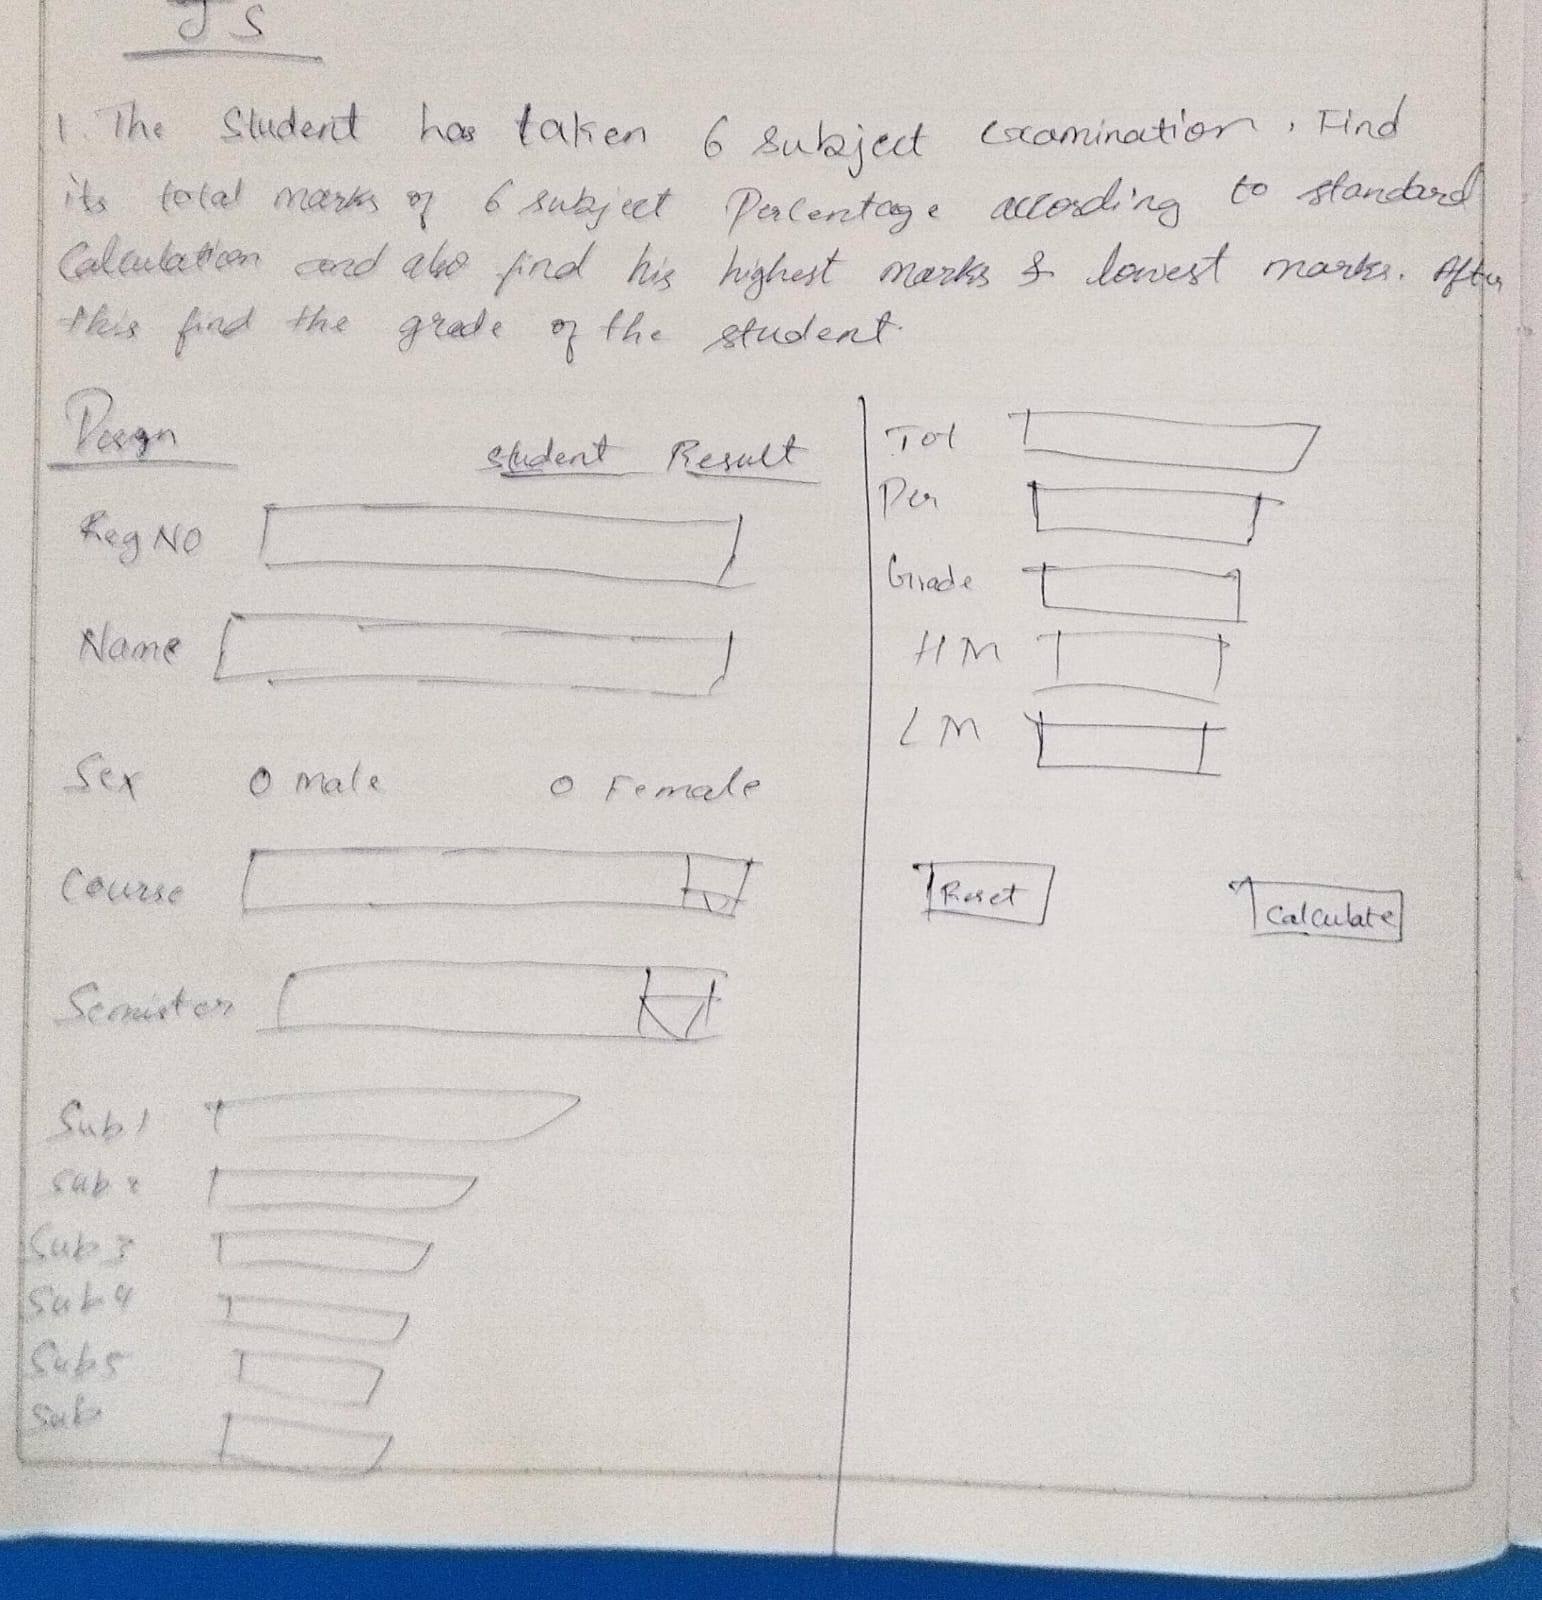 JS
1. The Student has taken 6 subject examination, Find
its total marks of 6 subject Percentage according to standard
Calculation and also find his highest marks & lowest marks. After
this find the grade of the student.
Design
Student Result
Reg NO
Name
Sex O male O Female
Course
Semister
Sub 1
Sub 2
Sub 3
Sub 4
Sub 5
Sub
Tot
Per
Grade
HM
LM
Reset Calculate